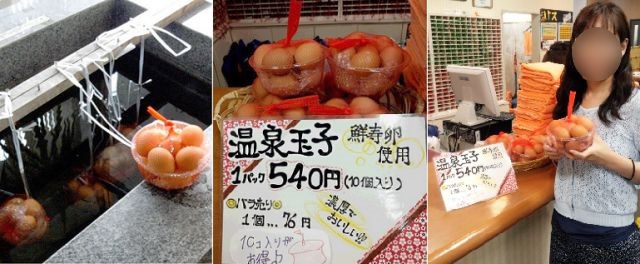 温泉玉子
鮮寿卵
使用
1パック540円(10個入り)
バラ売り
1個…76円
濃厚で
おいしい!!
10コ入りが
お得♪
温泉玉子